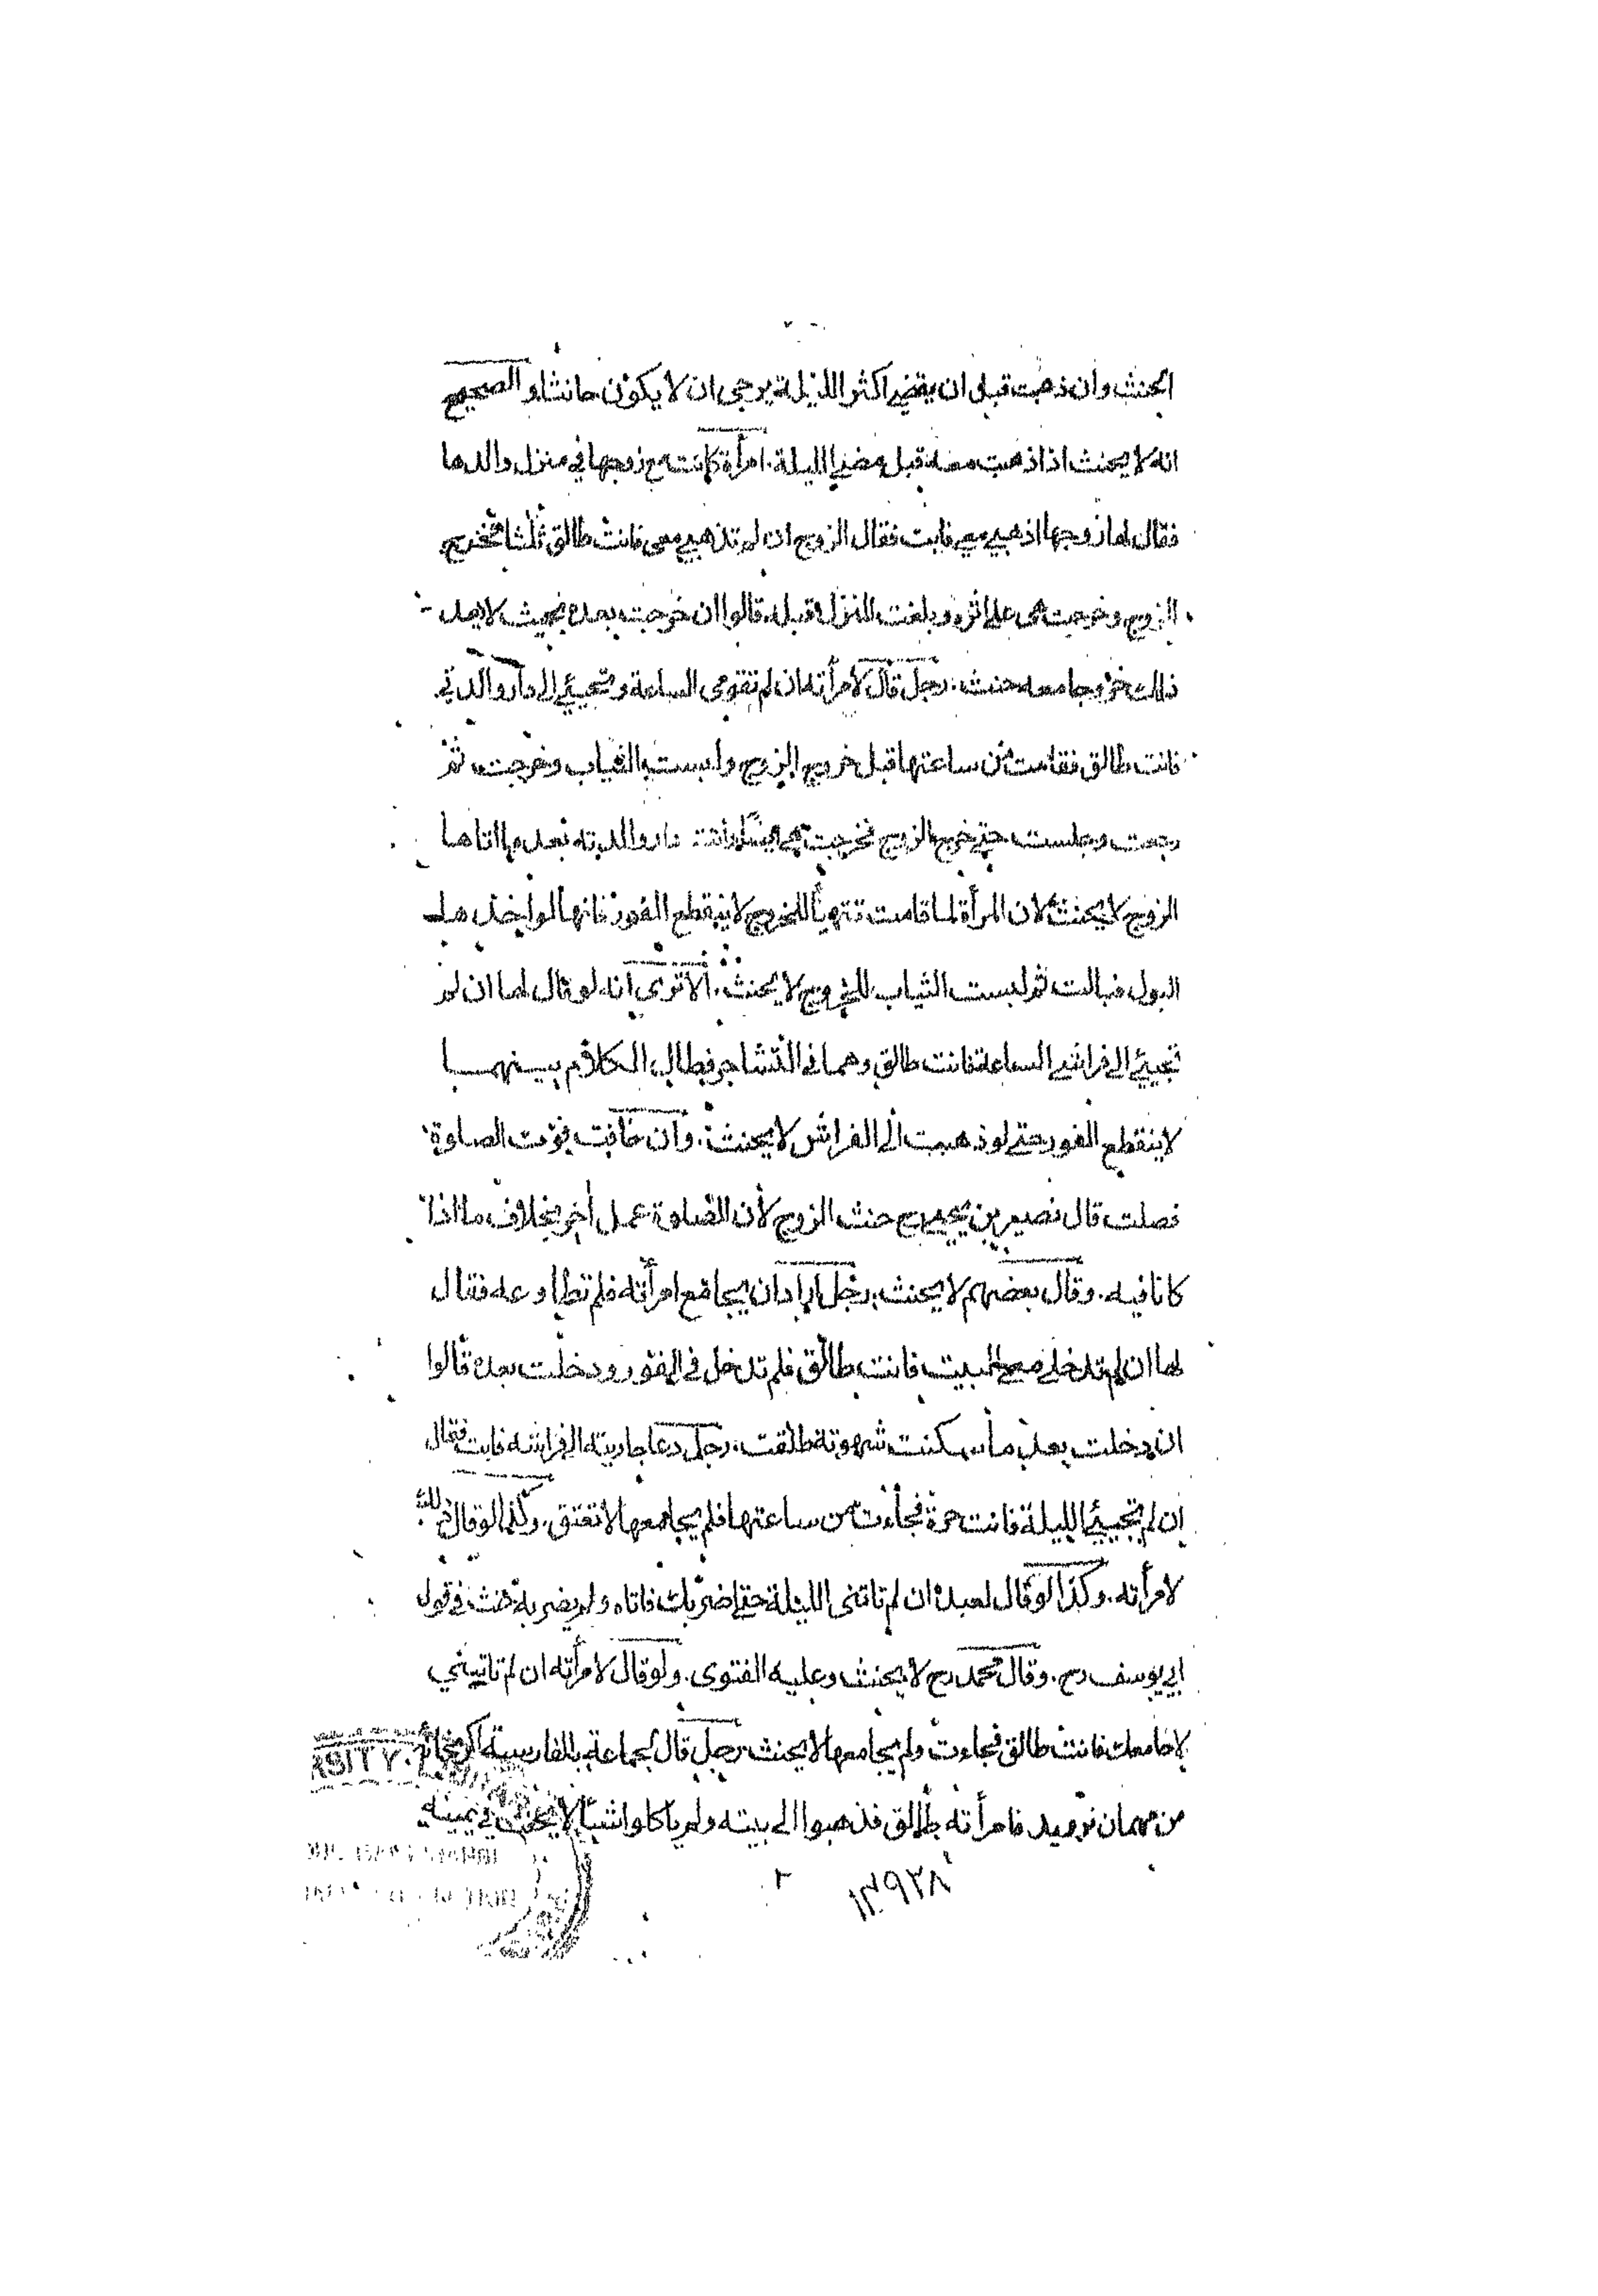 الحنث وان ذهبت قبل ان يمضي اكثر الليلة يرجى ان لا يكون حانثا و الصحيح
انه لا يحنث اذا ذهبت معه قبل مضي الليلة. امرأة كانت مع زوجها في منزل والدها
فقال لها زوجها اذهبي معي فابت فقال الزوج ان لم تذهبي معي فانت طالق ثلثا فخرج
الزوج وخرجت هي على اثره وبلغت المنزل قبله قالوا ان خرجت بعده بحيث لا يعد
ذلك خروجا معه حنث. رجل قال لامرأته ان لم تقومي الساعة وتجيئي الى دار والدتي
فانت طالق فقامت من ساعتها قبل خروج الزوج ولبست الثياب وخرجت ثم
رجعت وجلست حتى خرج الزوج فخرجت هي دار والدته بعد ما اتاها
الزوج لا يحنث لان المرأة لما قامت تتهيأ للخروج لا ينقطع الفور فانها لو اخذها
البول فبالت ثم لبست الثياب للخروج لا يحنث. ألا ترى انه لو قال لها ان لم
تجيئي الى فراشي الساعة فانت طالق وهما في التشاجر فطال الكلام بينهما
لا ينقطع الفور حتى لو ذهبت الى الفراش لا يحنث. وان خافت فوت الصلوة
فصلت قال نصير بن يحيى رح حنث الزوج لأن الصلوة عمل اخر بخلاف ما اذا
كانا فيه. وقال بعضهم لا يحنث. رجل اراد ان يجامع امرأته فلم تطاوعه فقال
لها ان لم تدخلي معي البيت فانت طالق فلم تدخل في الفور ودخلت بعده قالوا
ان دخلت بعد ما سكنت شهوته طلقت. رجل دعا جاريته الى فراشه فابت فقال
ان لم تجيئي الليلة فانت حرة فجاءت من ساعتها فلم يجامعها لا تعتق. وكذا لو قال ذلك
لامرأته. وكذا لو قال لعبده ان لم تاتني الليلة حتى اضربك فاتاه ولم يضربه حنث في قول
ابي يوسف رح. وقال محمد رح لا يحنث وعليه الفتوى. ولو قال لامرأته ان لم تاتيني
لاجامعك فانت طالق فجاءت ولم يجامعها لا يحنث. رجل قال لجماعة بالفارسية اكر بخانه
من مهمان نرويد فامرأته طالق فذهبوا الى بيته ولم ياكلوا شيأ لا يحنث في يمينه
RSITY.
٢
١٣٩٢٨